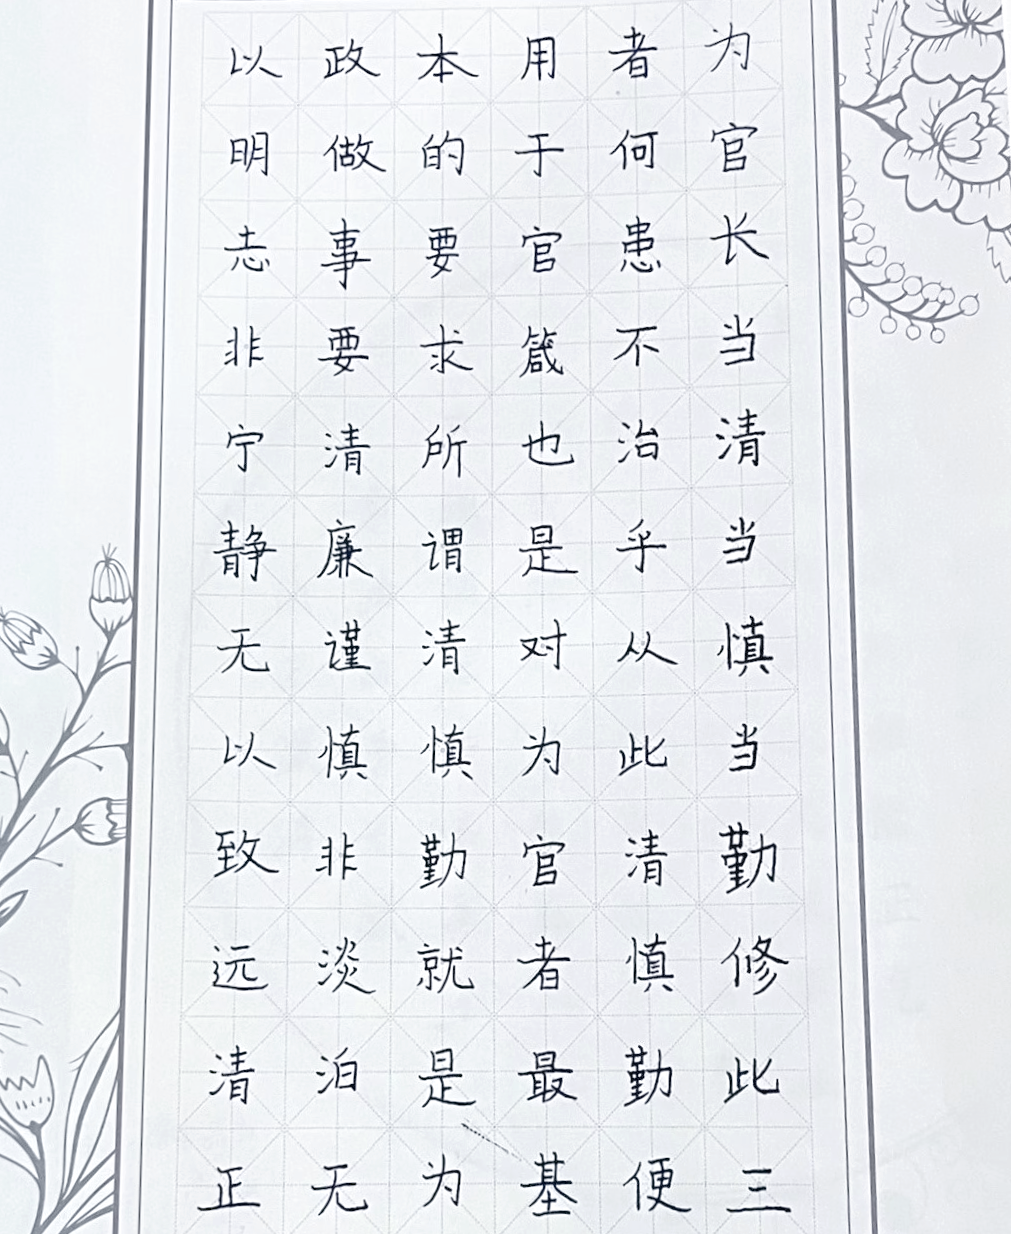 为官长当清当慎当勤修此三
者何患不治乎从此清慎勤便
用于官箴也是对为官者最基
本的要求所谓清慎勤就是为
政做事要清廉谨慎非淡泊无
以明志非宁静无以致远清正